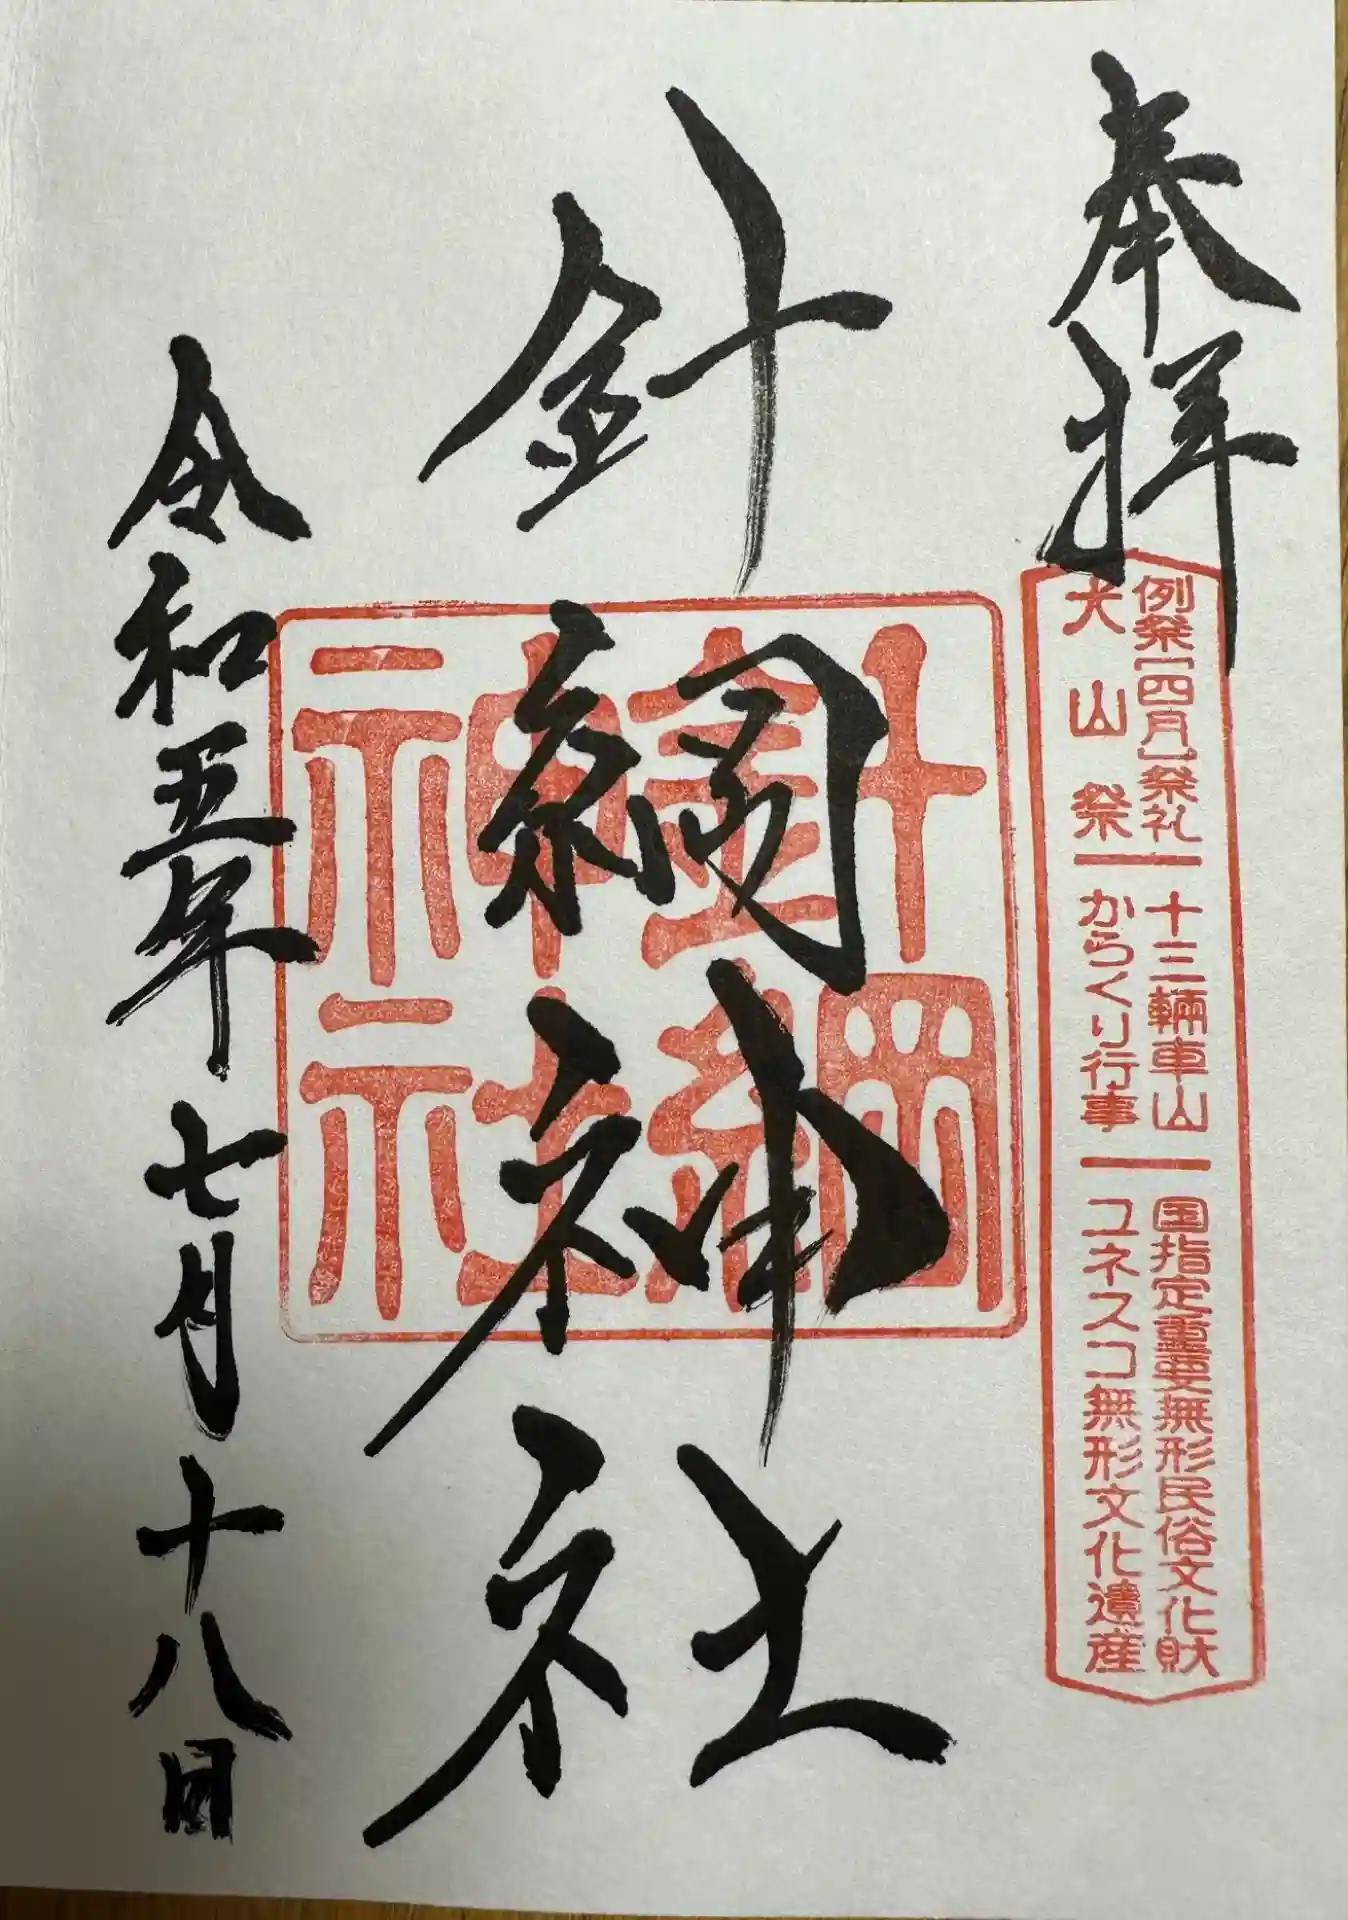 奉拝
例祭[四月]祭礼 十三輛車山 国指定重要無形民俗文化財
犬山祭 からくり行事 ユネスコ無形文化遺産
針綱神社
針綱神社
令和五年七月十八日